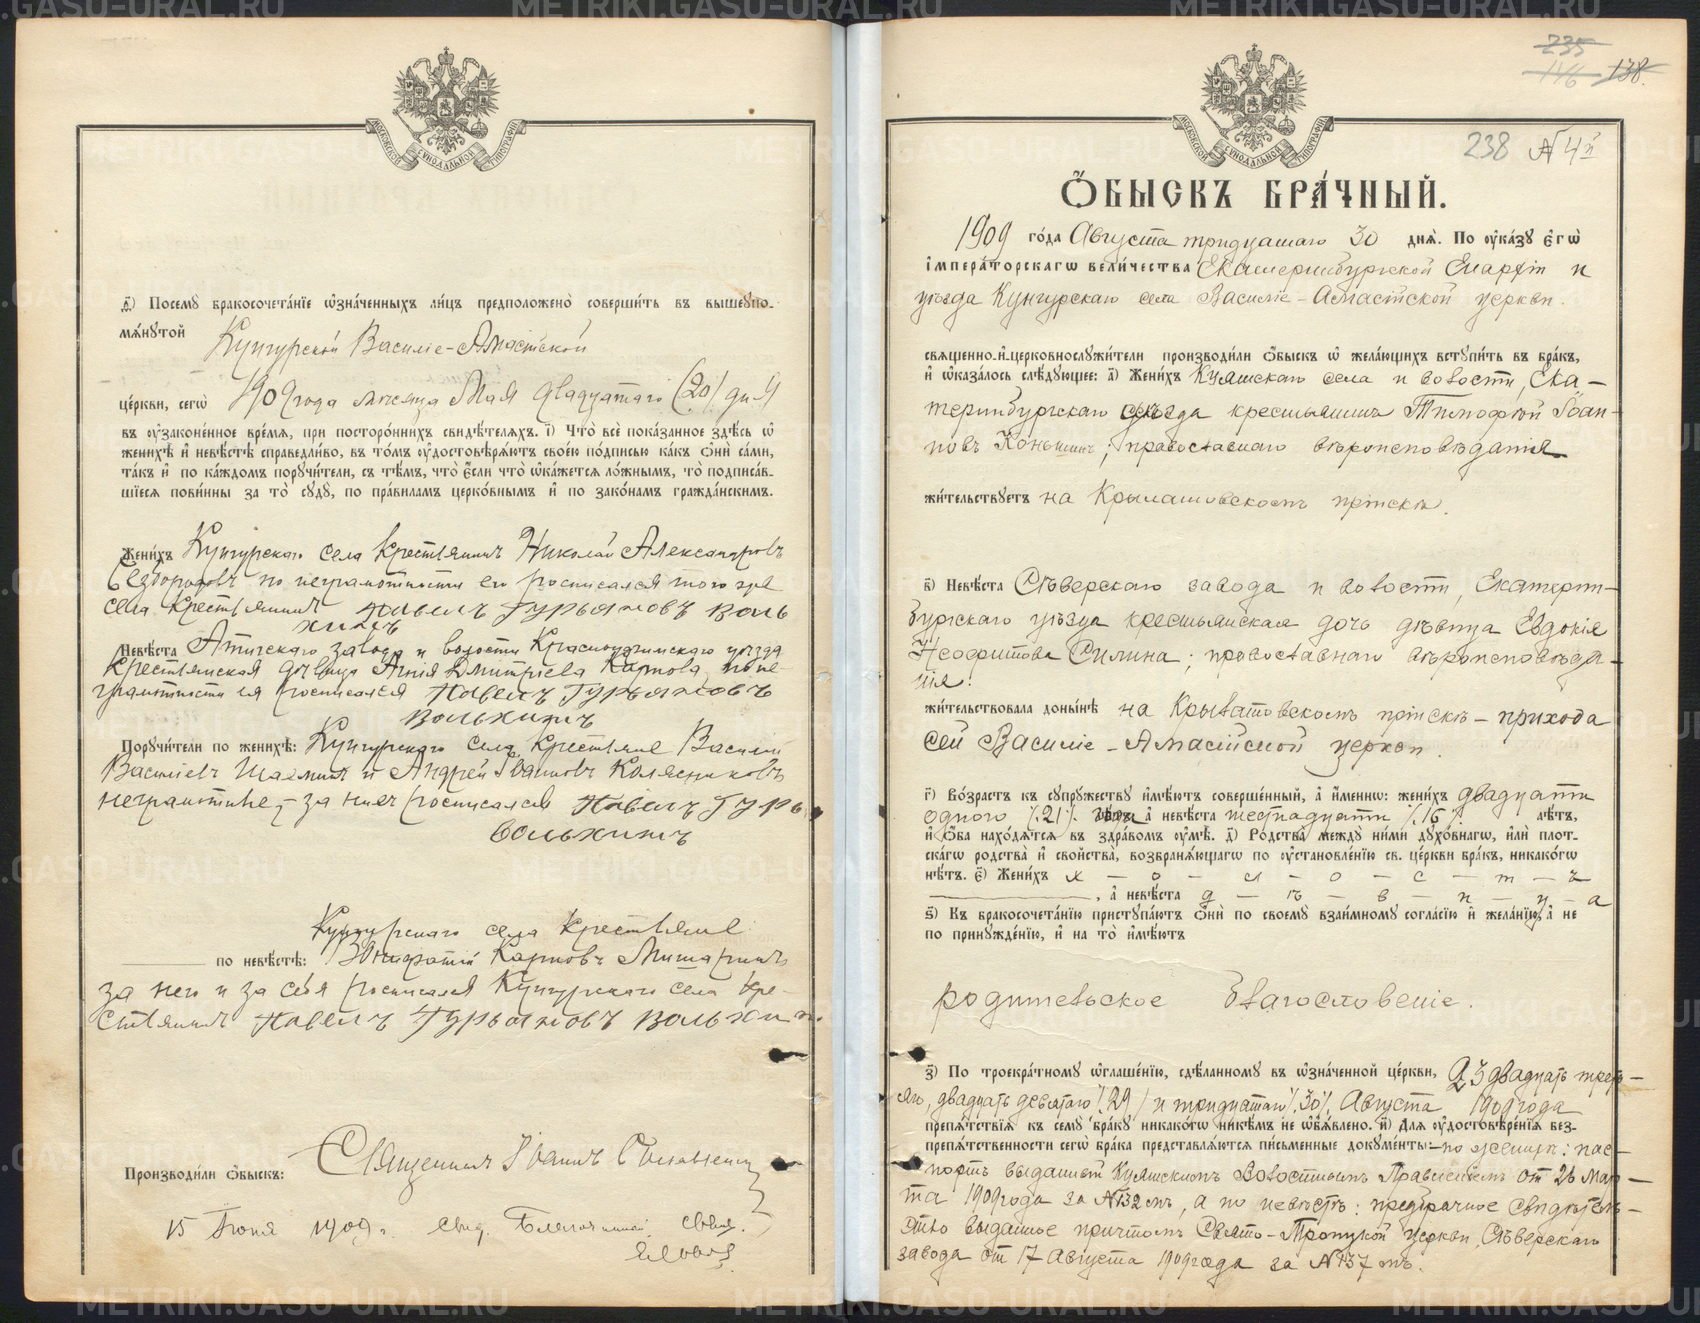 МОСКОВСКОЙ СѴНОДАЛЬНОЙ ТИПОГРАФІИ
д҃) Посемꙋ̀ бракосочета́нїе ѡ҆зна́ченныхъ ли́цъ предположено̀ соверши́ть въ вышеꙋпо-
мѧ́нꙋтой Кунгурской Василіе-Амасійской
це́ркви, сегѡ̀ 1909 года мѣсяца Мая двадцатаго (20) дня
въ ᲂу҆зако́ненное вре́мѧ, при посторо́ннихъ свидѣ́телѧхъ. і҃) Что̀ всѐ пока́занное здѣ́сь ѡ҆
женихѣ̀ и҆ невѣ́стѣ справедли́во, въ то́мъ ᲂу҆достовѣрѧ́ютъ свое́ю по́дписью какъ ѻ҆нѝ са́ми,
та́къ и҆ по ка́ждомъ порꙋчи́тели, съ тѣ́мъ, что̀ є҆́сли что̀ ѡ҆ка́жется ло́жнымъ, то̀ подписа́в-
шїеся пови́нны за то̀ сꙋдꙋ̀, по пра́виламъ церко́внымъ и҆ по зако́намъ гражда́нскимъ.
Жени́хъ Кунгурскаго села крестьянинъ Николай Александровъ
Безбородовъ по неграмотности его росписался того же
села крестьянинъ Павелъ Гурьяновъ Воль
хинъ
Невѣ́ста Атигскаго завода и волости Красноуфимскаго уѣзда
крестьянская дѣвица Агнія Дмитріева Карпова, по не-
грамотности ея росписался Павелъ Гурьяновъ
Вольхинъ
Порꙋчи́тели по женихѣ̀: Кунгурскаго села крестьяне Василій
Васильевъ и Андрей Ивановъ Колясниковъ
неграмотные, за нихъ росписался Павелъ Гурь
Вольхинъ
Кунгурскаго села крестьяне
по невѣ́стѣ: Карповъ
за него и за себя росписался Кунгурскаго села кре-
стьянинъ Павелъ Гурьяновъ Вольхинъ.
Производи́ли ѻ҆́быскъ: Священникъ Іоаннъ
15 Іюня 1909 г. свид. Благочинный свящ.
235
146 138.
МОСКОВСКОЙ СѴНОДАЛЬНОЙ ТИПОГРАФІИ
238 № 4й
Ѻ҆́БЫСКЪ БРА́ЧНЫЙ.
1909 го́да Августа тридцатаго 30 днѧ̀. По ᲂу҆ка́зꙋ Є҆гѡ̀
І҆мпера́торскагѡ вели́чества Екатеринбургской Епархіи и
уѣзда Кунгурскаго села Василіе-Амасійской церкви.
свѧще́нно-и҆-церковнослꙋжи́тели производи́ли ѻ҆́быскъ ѡ҆ жела́ющихъ встꙋпи́ть въ бра́къ,
и҆ ѡ҆каза́лось слѣ́дꙋющее: а҃) Жени́хъ Куяшскаго села и волости, Ека-
теринбургскаго уѣзда крестьянинъ Тимофѣй Іоан-
новъ Коньшинъ, православнаго вѣроисповѣданія
жи́тельствꙋетъ на Крылатовскомъ пріискѣ.
в҃) Невѣ́ста Сѣверскаго завода и волости, Екатерин-
бургскаго уѣзда крестьянская дочь дѣвица Евдокія
Неофитова Силина; православнаго вѣроисповѣда-
нія.
жи́тельствовала доны́нѣ на Крылатовскомъ пріискѣ - прихода
сей Василіе-Амасійской церкви.
г҃) Во́зрастъ къ сꙋпрꙋ́жествꙋ и҆мѣ́ютъ соверше́нный, а҆ и҆́меннѡ: жени́хъ двадцати
одного /21/ а҆ невѣ́ста шестнадцати /16/ лѣ́тъ,
и҆ ѻ҆́ба нахо́дѧтся въ здра́вомъ ᲂу҆мѣ̀. д҃) Родства̀ междꙋ̀ ни́ми дꙋхо́внагѡ, и҆лѝ пло́т-
скагѡ родства̀ и҆ свойства̀, возбранѧ́ющагѡ по ᲂу҆становле́нїю св. це́ркви бра́къ, никако́гѡ
нѣ́тъ. є҃) Жени́хъ х - о - л - о - с - т - ъ
, а҆ невѣ́ста д - ѣ - в - и - ц - а
ѕ҃) Къ бракосочета́нїю пристꙋпа́ютъ ѻ҆нѝ по своемꙋ̀ взаи́мномꙋ согла́сїю и҆ жела́нїю, а҆ не
по принꙋжде́нїю, и҆ на то̀ и҆мѣ́ютъ
родительское благословеніе.
з҃) По троекра́тномꙋ ѡ҆глаше́нїю, сдѣ́ланномꙋ въ ѡ҆зна́ченной це́ркви, 23 двадцать треть-
яго, двадцать девятаго /29/ и тридцатаго /30/ Августа 1909 года
препѧ́тствїѧ къ семꙋ̀ бра́кꙋ никако́гѡ никѣ́мъ не ѡ҆б̾ѧ́влено. и҃) Для ᲂу҆достовѣ́ренїѧ без-
препѧ́тственности сегѡ̀ бра́ка представлѧ́ются пи́сьменные докꙋме́нты: - по женихѣ: пас-
портъ выданный Куяшскимъ Волостнымъ Правленіемъ от 26 Мар-
та 1909 года за №132мъ, а по невѣстѣ: предбрачное свидѣтель-
ство выданное причтомъ Свято-Троицкой церкви, Сѣверскаго
завода от 17 Августа 1909 года за №137мъ.
METRIKI.GASU-URAL.RU